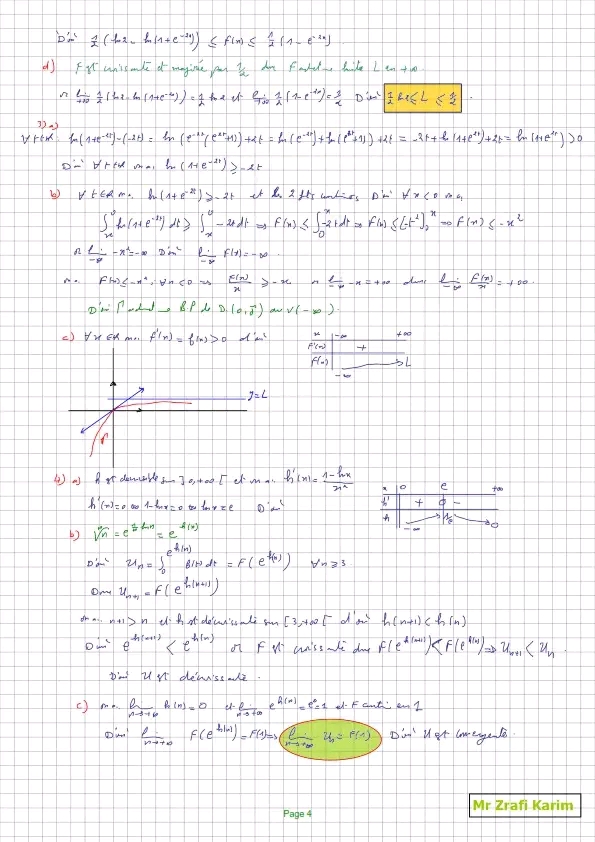 D'où 1/2 (ln2 - ln(1+e^-2x)) ≤ F(x) ≤ 1/2 (1 - e^-2x)
d) F est croissante et majorée par 1/2 donc F admet une limite L en +∞
or lim +∞ 1/2 (ln2 - ln(1+e^-2x)) = 1/2 ln2 et lim +∞ 1/2 (1 - e^-2x) = 1/2 D'où 1/2 ln2 ≤ L ≤ 1/2.
3) a)
∀t∈ℝ ln(1+e^-2t) - (-2t) = ln(e^-2t(e^2t+1)) + 2t = ln(e^-2t) + ln(e^2t+1) + 2t = -2t + ln(1+e^2t) + 2t = ln(1+e^2t) > 0
D'où ∀t∈ℝ on a: ln(1+e^-2t) ≥ -2t
b) ∀t∈ℝ on a ln(1+e^-2t) ≥ -2t et les 2 fcts continues D'où ∀x<0 on a
∫_x^0 ln(1+e^-2t) dt ≥ ∫_x^0 -2t dt ⇒ F(x) ≤ ∫_0^x -2t dt ⇒ F(x) ≤ [-t²]_0^x ⇒ F(x) ≤ -x²
or lim -∞ -x² = -∞ D'où lim -∞ F(x) = -∞.
on a F(x) ≤ -x², ∀x<0 ⇒ F(x)/x ≥ -x or lim -∞ -x = +∞ donc lim -∞ F(x)/x = +∞.
D'où Γ admet une B.P de D(0, j) au v(-∞).
c) ∀x∈ℝ on a F'(x) = f(x) > 0 d'où
x -∞ +∞
F'(x) +
F(x) -∞ L
y=L
Γ
4) a) h est dérivable sur ]0,+∞[ et on a: h'(x) = (1-lnx)/x²
h'(x)=0 ⇔ 1-lnx=0 ⇔ lnx=e D'où
x 0 e +∞
h' + 0 -
h -∞ 1/e 0
b) ⁿ√n = e^(1/n ln n) = e^h(n)
D'où Un = ∫_0^(e^h(n)) f(t) dt = F(e^h(n)) ∀n≥3
Donc Un+1 = F(e^h(n+1))
on a: n+1>n et h est décroissante sur [3,+∞[ d'où h(n+1)<h(n)
D'où e^h(n+1) < e^h(n) or F est croissante donc F(e^h(n+1)) < F(e^h(n)) ⇒ Un+1 < Un.
D'où U est décroissante.
c) on a lim n→+∞ h(n) = 0 et lim n→+∞ e^h(n) = e^0 = 1 et F continue en 1
D'où lim n→+∞ F(e^h(n)) = F(1) ⇒ lim n→+∞ Un = F(1) D'où U est convergente.
Mr Zrafi Karim
Page 4